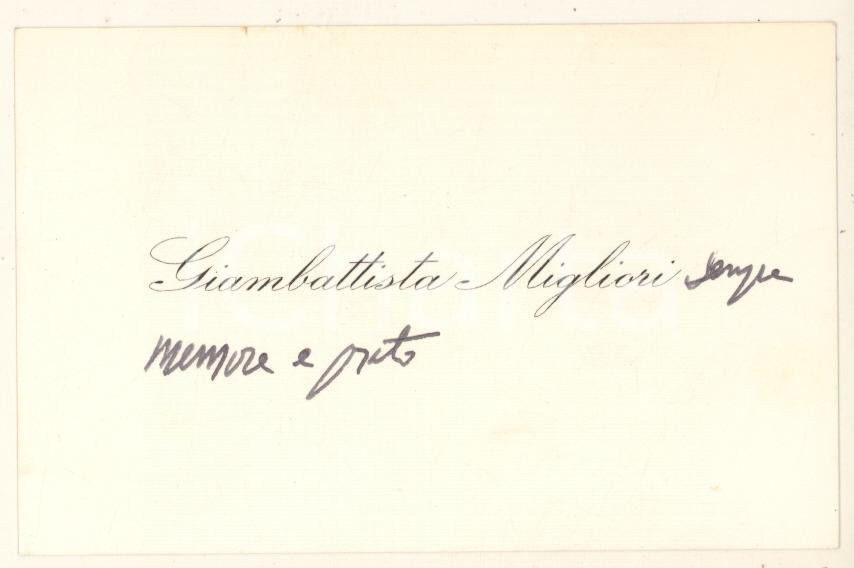 Giambattista Migliori sempre
memore e grato